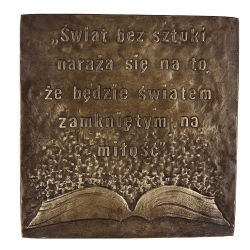 „Świat bez sztuki
naraża się na to,
że będzie światem
zamkniętym na
miłość”